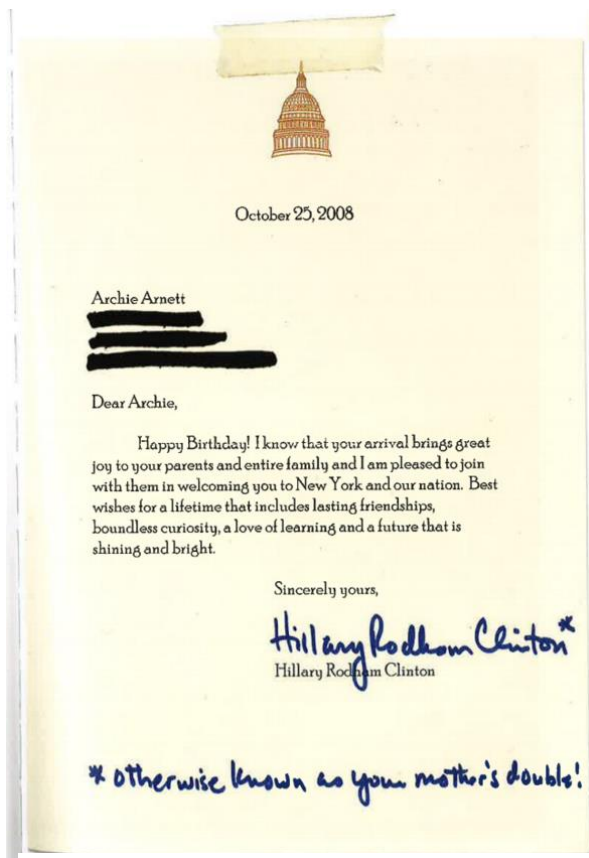 October 25, 2008
Archie Arnett
Dear Archie,
Happy Birthday! I know that your arrival brings great
joy to your parents and entire family and I am pleased to join
with them in welcoming you to New York and our nation. Best
wishes for a lifetime that includes lasting friendships,
boundless curiosity, a love of learning and a future that is
shining and bright.
Sincerely yours,
Hillary Rodham Clinton*
Hillary Rodham Clinton
* otherwise known as your mother's double!